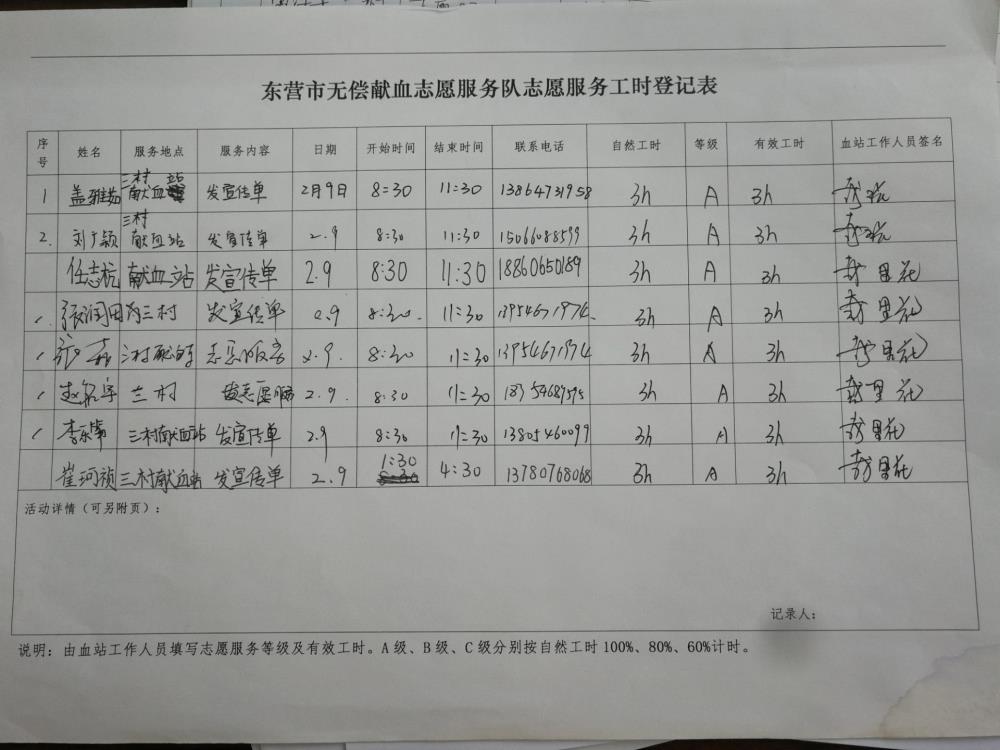 东营市无偿献血志愿服务队志愿服务工时登记表
序号 姓名 服务地点 服务内容 日期 开始时间 结束时间 联系电话 自然工时 等级 有效工时 血站工作人员签名
1 盖雅茹 三村献血站 发宣传单 2月9日 8:30 11:30 13864731958 3h A 3h
2. 刘广颖 三村献血站 发宣传单 2.9 8:30 11:30 15066088599 3h A 3h
任志杭 献血站 发宣传单 2.9 8:30 11:30 18860650189 3h A 3h
张润田 三村 发宣传单 2.9 8:30. 11:30 13954671974. 3h A 3h
三村 2.9. 8:30 11:30 13954671974 3h A 3h
三村 志愿服务 2.9. 8:30 11:30 3h A 3h
三村献血站 发宣传单 2.9 8:30 11:30 13805460099 3h A 3h
崔珂祯 三村献血站 发宣传单 2.9 1:30 4:30 13780768068 3h A 3h
活动详情（可另附页）：
记录人：
说明：由血站工作人员填写志愿服务等级及有效工时。A 级、B 级、C 级分别按自然工时 100%、80%、60%计时。